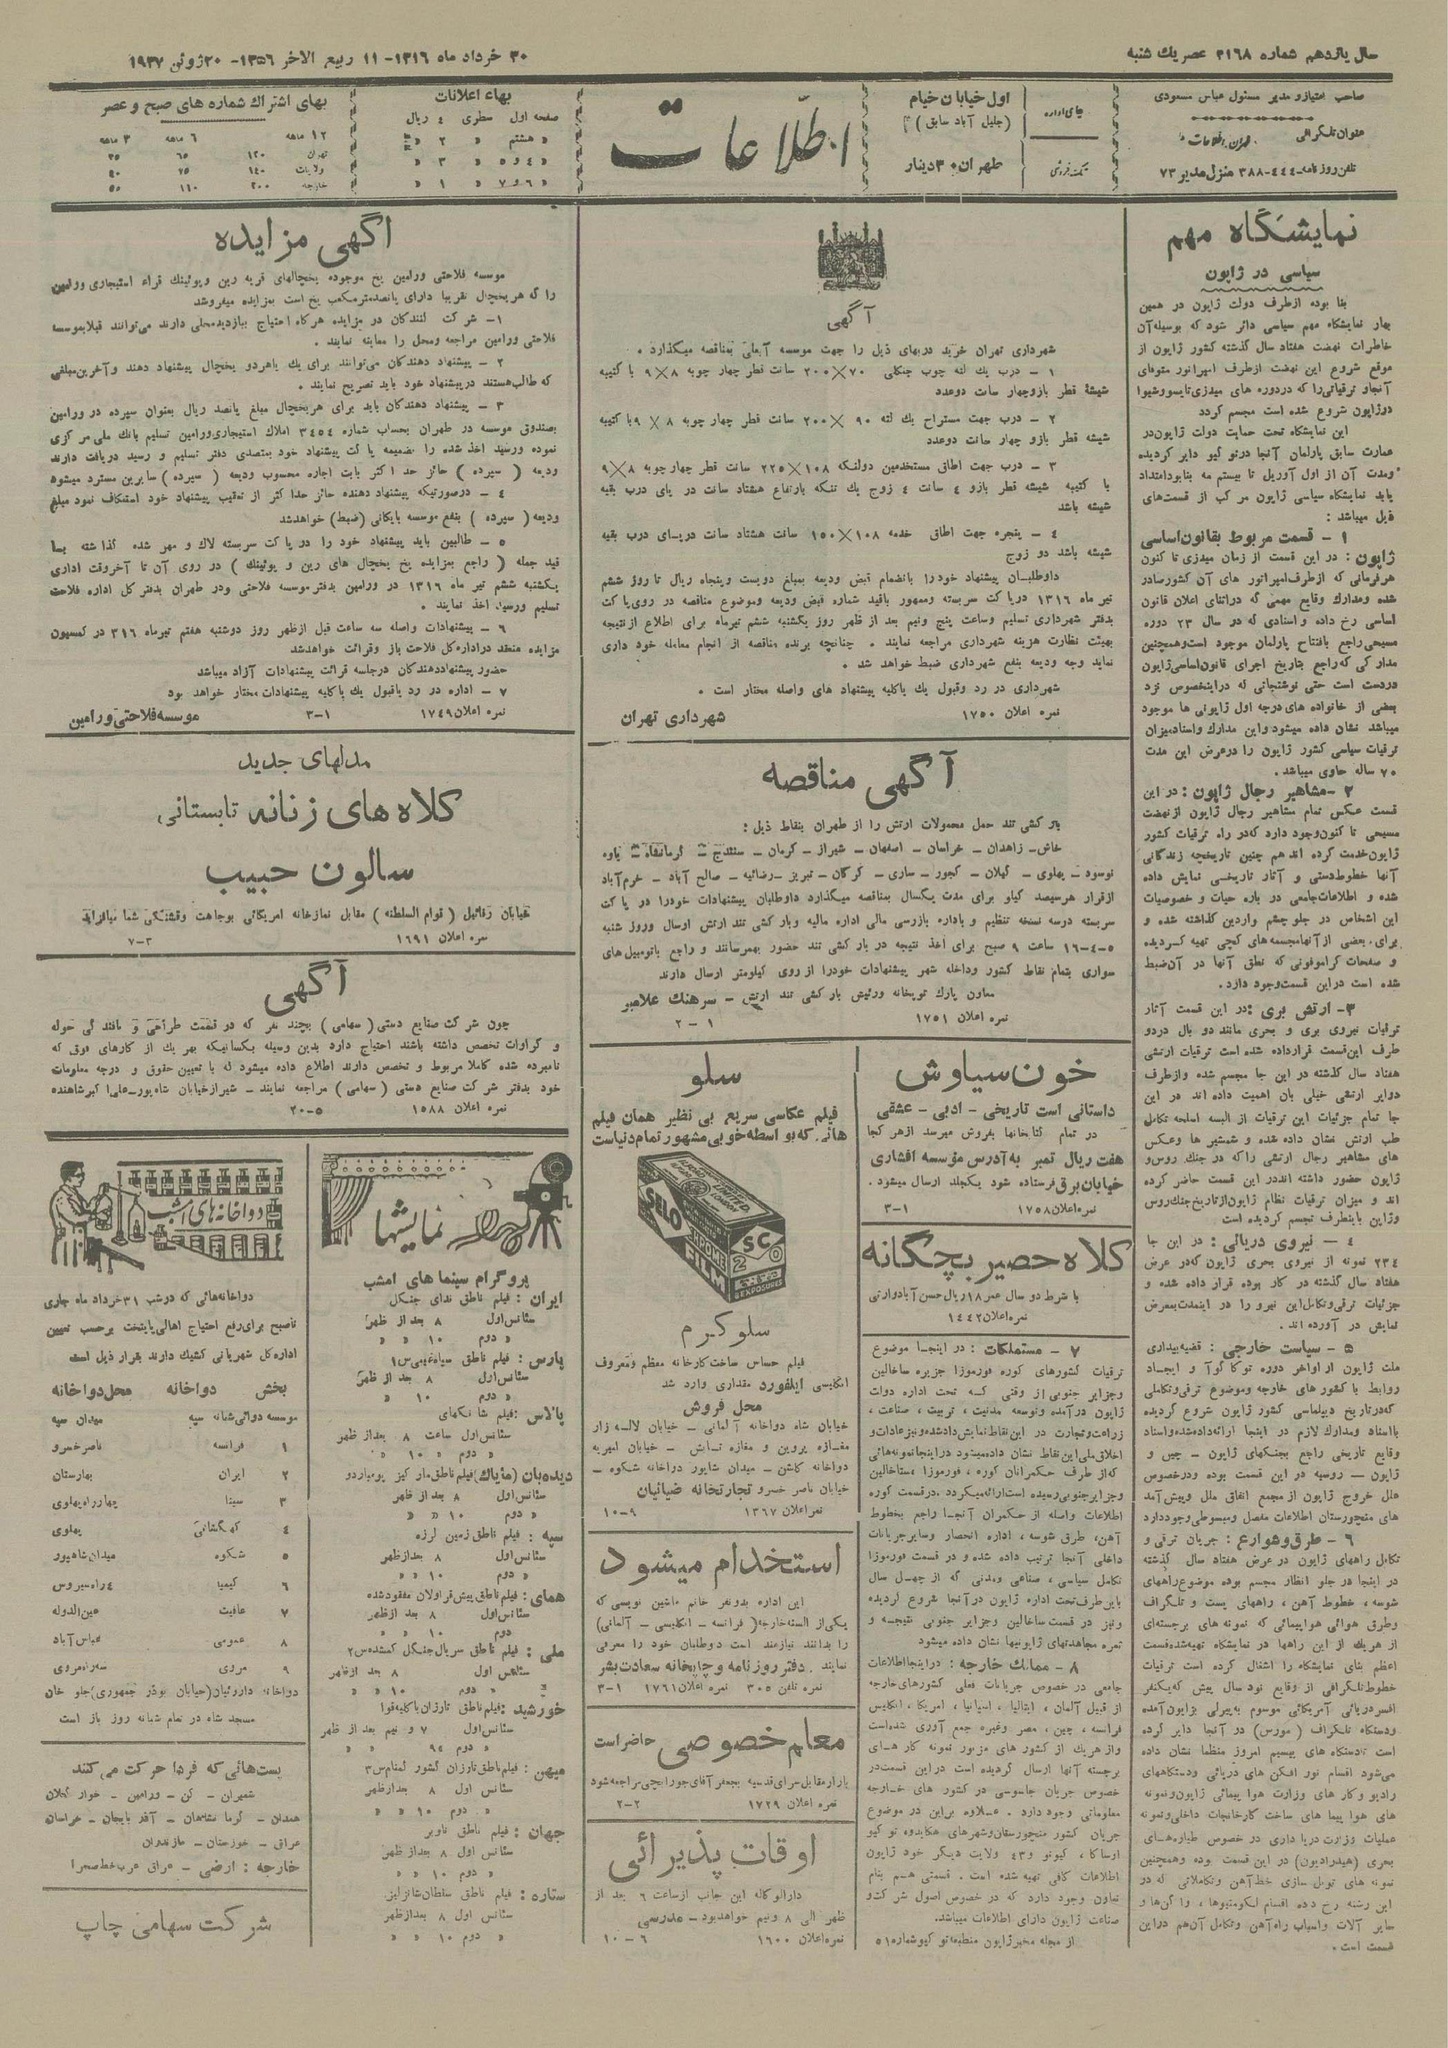 سال یازدهم شماره ۳۱۶۸ عصر یك شنبه
۳۰ خرداد ماه ۱۳۱۶- ۱۱ ربیع الاخر ۱۳۵۶- ۲۰ ژوئن ۱۹۳۷
صاحب امتیاز و مدیر مسئول عباس مسعودی
عنوان تلگرافی
طهران اطلاعات
تلفن روزنامه-۴۴۴-۳۸۸ منزل مدیر ۷۳
جای اداره
تکفروشی
اول خیابان خیام
(جلیل آباد سابق)
طهران ۳۰ دینار
اطلاعات
بهاء اعلانات
صفحه اول سطری ۴ ریال
« هشتم « ۲ «
« ۴ و ۵ « ۳ «
« ۶ و ۷ « ۱ «
بهای اشتراك شماره های صبح و عصر
۱۲ ماهه ۶ ماهه ۳ ماهه
تهران ۱۲۰ ۶۵ ۳۵
ولایات ۱۴۰ ۷۵ ۴۰
خارجه ۲۰۰ ۱۱۰ ۵۵
نمایشگاه مهم
سیاسی در ژاپون
بنا بوده از طرف دولت ژاپون در همین
بهار نمایشگاه مهم سیاسی دائر شود که بوسیله آن
خاطرات نهضت هفتاد سال گذشته کشور ژاپون از
موقع شروع این نهضت از طرف امپراتور متوفای
آنجا و ترقیاتی را که در دوره های میدزی تایسو و شیوا
در ژاپون شروع شده است مجسم گردد
این نمایشگاه تحت حمایت دولت ژاپون در
عمارت سابق پارلمان آنجا در توکیو دایر گردیده
و مدت آن از اول آوریل تا بیستم مه بنا بود امتداد
یابد نمایشگاه سیاسی ژاپون مرکب از قسمت های
ذیل میباشد :
۱ - قسمت مربوط بقانون اساسی
ژاپون : در این قسمت از زمان میدزی تا کنون
هر فرمانی که از طرف امپراتور های آن کشور صادر
شده و مدارك وقایع مهمی که در اثنای اعلان قانون
اساسی رخ داده و اسنادی که در سال ۲۳ دوره
مسیحی راجع بافتتاح پارلمان موجود است و همچنین
مدارکی که راجع بتاریخ اجرای قانون اساسی ژاپون
در دست است حتی نوشتجاتی که در اینخصوص نزد
بعضی از خانواده های درجه اول ژاپونی ها موجود
میباشد نشان داده میشود و این مدارك و اسناد میزان
ترقیات سیاسی کشور ژاپون را در عرض این مدت
۷۰ ساله حاوی میباشد .
۲ - مشاهیر رجال ژاپون : در این
قسمت عکس تمام مشاهیر رجال ژاپون از نهضت
مسیحی تا کنون وجود دارد که در راه ترقیات کشور
ژاپون خدمت کرده اند هم چنین تاریخچه زندگانی
آنها خطوط دستی و آثار تاریخی نمایش داده
شده و اطلاعات جامعی در باره حیات و خصوصیات
این اشخاص در جلو چشم واردین گذاشته شده و
برای بعضی از آنها مجسمه های گچی تهیه گردیده
و صفحات گرامافونی که نطق آنها در آن ضبط
شده است در این قسمت وجود دارد .
۳ - ارتش بری : در این قسمت آثار
ترقیات نیروی بری و بحری مانند دو بال در دو
طرف این قسمت قرار داده شده است ترقیات ارتشی
هفتاد سال گذشته در این جا مجسم شده و از طرف
دوایر ارتشی خیلی بآن اهمیت داده اند در این
جا تمام جزئیات این ترقیات از البسه اسلحه تکامل
طب ارتش نشان داده شده و شمشیر ها و عکس
های مشاهیر رجال ارتشی را که در جنك روس و
ژاپون حضور داشته اند در این قسمت حاضر کرده
اند و میزان ترقیات نظام ژاپون از تاریخ جنك روس
و ژاپن باینطرف تجسم گردیده است
۴ - نیروی دریائی : در این جا
۲۳۴ نمونه از نیروی بحری ژاپون که در عرض
هفتاد سال گذشته در کار بوده قرار داده شده و
جزئیات ترقی و تکامل این نیرو را در اینمدت بمعرض
نمایش در آورده اند .
۵ - سیاست خارجی : قضیه بیداری
ملت ژاپون از اواخر دوره توکاگوآ و ایجاد
روابط با کشور های خارجه و موضوع ترقی و تکاملی
که در تاریخ دیپلماسی کشور ژاپون شروع گردیده
با اسناد و مدارك لازم در اینجا ارائه داده شده و اسناد
وقایع تاریخی راجع بجنگهای ژاپون - چین و
ژاپون - روسیه در این قسمت بوده و در خصوص
علل خروج ژاپون از مجمع اتفاق ملل و پیش آمد
های منچورستان اطلاعات مفصل و مبسوطی وجود دارد
۶ - طرق و شوارع : جریان ترقی و
تکامل راههای ژاپون در عرض هفتاد سال گذشته
در اینجا در جلو انظار مجسم بوده موضوع راههای
شوسه ، خطوط آهن ، راههای پست و تلگراف
و طرق هوائی هواپیمائی که نمونه های برجسته ای
از هریك از این راهها در نمایشگاه تهیه شده قسمت
اعظم بنای نمایشگاه را اشغال کرده است ترقیات
خطوط تلگرافی از وقایع نود سال پیش که یکنفر
افسر دریائی آمریکائی موسوم به پیرلی بژاپون آمده
و دستگاه تلگراف (مورس) در آنجا دایر کرده
است تا دستگاه های بیسیم امروز منظما نشان داده
می شود اقسام نور افکن های دریائی و دستگاههای
رادیو و کار های وزارت هوا پیمائی ژاپون و نمونه
های هوا پیما های ساخت کارخانجات داخلی و نمونه
عملیات وزارت دریا داری در خصوص طیاره های
بحری (هیدرادیون) در این قسمت بوده و همچنین
نمونه های تونل سازی خط آهن و تکاملاتی که در
این رشته رخ داده اقسام لکوموتیوها ، واگن ها و
سایر آلات و اسباب راه آهن و تکامل آن هم در این
قسمت است .
آگهی
شهرداری تهران خرید دربهای ذیل را جهت موسسه آبعلی بمناقصه میگذارد .
۱ - درب یك لته چوب جنگلی ۷۰×۲۰۰ سانت قطر چهار چوبه ۸×۹ با کتیبه
شیشه قطر بازو چهار سانت دو عدد
۲ - درب جهت مستراح یك لته ۹۰×۲۰۰ سانت قطر چهار چوبه ۸×۹ با کتیبه
شیشه قطر بازو چهار سانت دو عدد
۳ - درب جهت اطاق مستخدمین دولنگه ۱۰۸×۲۲۵ سانت قطر چهار چوبه ۸×۹
با کتیبه شیشه قطر بازو ۴ سانت ۴ زوج یك تنکه بارتفاع هشتاد سانت در پای درب بقیه
شیشه باشد
۴ - پنجره جهت اطاق خدمه ۱۰۸×۱۵۰ سانت هشتاد سانت در پای درب بقیه
شیشه باشد دو زوج
داوطلبان پیشنهاد خود را بانضمام قبض ودیعه بمبلغ دویست و پنجاه ریال تا روز ششم
تیر ماه ۱۳۱۶ در پاکت سربسته و ممهور باقید شماره قبض ودیعه و موضوع مناقصه در روی پاکت
بدفتر شهرداری تسلیم و ساعت پنج و نیم بعد از ظهر روز یکشنبه ششم تیر ماه برای اطلاع از نتیجه
بهیئت نظارت هزینه شهرداری مراجعه نمایند . چنانچه برنده مناقصه از انجام معامله خود داری
نماید وجه ودیعه بنفع شهرداری ضبط خواهد شد .
شهرداری در رد و قبول یك یا کلیه پیشنهاد های واصله مختار است .
نمره اعلان ۱۷۵۰ شهرداری تهران
آگهی مناقصه
بار کشی تند حمل محمولات ارتش را از طهران بنقاط ذیل :
خاش - زاهدان - خراسان - اصفهان - شیراز - کرمان - سنندج - کرمانشاه - پاوه
نوسود - پهلوی - گیلان - کجور - ساری - گرگان - تبریز - رضائیه - صالح آباد - خرم آباد
از قرار هر سیصد کیلو برای مدت یکسال بمناقصه میگذارد داوطلبان پیشنهادات خود را در پاکت
سربسته در سه نسخه تنظیم و باداره بازرسی مالی اداره مالیه و بار کشی تند ارتش ارسال و روز شنبه
۵-۴-۱۶ ساعت ۹ صبح برای اخذ نتیجه در بار کشی تند حضور بهمرسانند و راجع باتومبیل های
سواری بتمام نقاط کشور و داخله شهر پیشنهادات خود را از روی کیلومتر ارسال دارند
معاون پارك توپخانه و رئیس بار کشی تند ارتش - سرهنك علامیر
نمره اعلان ۱۷۵۱ ۱ - ۲
خون سیاوش
داستانی است تاریخی - ادبی - عشقی
در تمام کتابخانها بفروش میرسد از هر کجا
هفت ریال تمبر به آدرس مؤسسه افشاری
خیابان برق فرستاده شود یکجلد ارسال میشود .
نمره اعلان ۱۷۵۸ ۱-۳
کلاه حصیر بچگانه
با شرط دو سال عمر ۱۸ ریال حسن آباد وارتی
نمره اعلان ۱۴۴۲
۷ - مستملکات : در اینجا موضوع
ترقیات کشورهای کوره فورموزا جزیره ساخالین
و جزایر جنوبی از وقتی که تحت اداره دولت
ژاپون در آمده و توسعه مدنیت ، تربیت ، صناعت ،
زراعت و تجارت در این نقاط نمایش داده شده و نیز عادات و
اخلاق ملی این نقاط نشان داده میشود در اینجا نمونه هائی
که از طرف حکمرانان کوره ، فورموزا و ساخالین
و جزایر جنوبی رسیده است ارائه میگردد . در قسمت کوره
اطلاعات واصله از حکمران آنجا راجع بخطوط
آهن، طرق شوسه ، اداره انحصار و سایر جریانات
داخلی آنجا ترتیب داده شده و در قسمت فورموزا
تکامل سیاسی ، صناعی و مدنی که از چهل سال
باین طرف تحت اداره ژاپون در آنجا شروع گردیده
و نیز در قسمت ساخالین و جزایر جنوبی نتیجه و
ثمره مجاهدتهای ژاپونیها نشان داده میشود
۸ - ممالك خارجه : در اینجا اطلاعات
جامعی در خصوص جریانات فعلی کشورهای خارجه
از قبیل آلمان ، ایتالیا ، اسپانیا ، امریکا ، انگلیس
فرانسه ، چین ، مصر و غیره جمع آوری شده است
و از هریك از کشور های مزبور نمونه کارهای
برجسته آنها ارسال گردیده است در این قسمت در
خصوص جریان جاسوسی در کشور های خارجه
معلوماتی وجود دارد . علاوه بر این در موضوع
جریان کشور منچورستان و شهرهای هکایدو تو کیو
اوساکا ، کیوتو و ۴۳ ولایت دیگر خود ژاپون
اطلاعات کافی تهیه شده است . قسمتی هم بنام
تعاون وجود دارد که در خصوص اصول شرکت و
صناعت ژاپون دارای اطلاعات میباشد.
از مجله مخبر ژاپون منطبعه تو کیو شماره ۵۱
سلو
فیلم عکاسی سریع بی نظیر همان فیلم
هائی که بواسطه خوبی مشهور تمام دنیاست
LIMITED
LONDON
SELO
CHROME
FILM
SC
20
8 EXPOSURES
سلو کرم
فیلم حساس ساخت کارخانه معظم و معروف
انگلیسی ایلفورد مقداری وارد شد
محل فروش
خیابان شاه دواخانه آلمانی - خیابان لاله زار
مغازه پروین و مغازه نمایش - خیابان امیریه
دواخانه کاشن - میدان شاپور دواخانه شکوه -
خیابان ناصر خسرو تجارتخانه ضیائیان
نمره اعلان ۱۳۶۷ ۹-۱۰
استخدام میشود
این اداره بدو نفر خانم ماشین نویسی که
یکی از السنه خارجه ( فرانسه - انگلیسی - آلمانی )
را بدانند نیازمند است دوطلبان خود را معرفی
نمایند . دفتر روزنامه و چاپخانه سعادت بشر
نمره تلفن ۳۰۵ نمره اعلان ۱۷۶۱ ۱-۳
معلم خصوصی حاضر است
بازار مقابل سرای قدسیه بجعفر آقای جورابچی مراجعه شود
نمره اعلان ۱۷۲۹ ۲-۲
اوقات پذیرائی
دارالوکاله این جانب از ساعت ۶ بعد از
ظهر الی ۸ و نیم خواهد بود - مدرسی
نمره اعلان ۱۶۰۰ ۶ - ۱۰
آگهی مزایده
موسسه فلاحتی ورامین یخ موجوده یخچالهای قریه رین و پوئینك قراء استیجاری ورامین
را که هر یخچال تقریبا دارای پانصد متر مکعب یخ است بمزایده میفروشد
۱- شرکت کنندگان در مزایده هر گاه احتیاج ببازدید محلی دارند می توانند قبلا بموسسه
فلاحتی ورامین مراجعه و محل را معاینه نمایند .
۲ - پیشنهاد دهندگان می توانند برای یك یا هر دو یخچال پیشنهاد دهند و آخرین مبلغی
که طالب هستند در پیشنهاد خود باید تصریح نمایند .
۳ - پیشنهاد دهندگان باید برای هر یخچال مبلغ پانصد ریال بعنوان سپرده در ورامین
بصندوق موسسه در طهران بحساب شماره ۳۴۵۴ املاك استیجاری ورامین تسلیم بانك ملی مرکزی
نموده و رسید اخذ شده را بضمیمه پاکت پیشنهاد خود بمتصدی دفتر تسلیم و رسید دریافت دارند
ودیعه ( سپرده ) حائز حد اکثر بابت اجاره محسوب ودیعه ( سپرده ) سایرین مسترد میشود
۴ - در صورتیکه پیشنهاد دهنده حائز حد اکثر از تعقیب پیشنهاد خود استنکاف نمود مبلغ
ودیعه ( سپرده ) بنفع موسسه بایگانی (ضبط) خواهد شد
۵ - طالبین باید پیشنهاد خود را در پاکت سربسته لاك و مهر شده گذاشته با
قید جمله ( راجع بمزایده یخ یخچال های رین و پوئینك ) در روی آن تا آخر وقت اداری
یکشنبه ششم تیر ماه ۱۳۱۶ در ورامین بدفتر موسسه فلاحتی و در طهران بدفتر کل اداره فلاحت
تسلیم و رسید اخذ نمایند .
۶ - پیشنهادات واصله سه ساعت قبل از ظهر روز دوشنبه هفتم تیر ماه ۳۱۶ در کمسیون
مزایده منعقد در اداره کل فلاحت باز و قرائت خواهد شد
حضور پیشنهاد دهندگان در جلسه قرائت پیشنهادات آزاد میباشد
۷ - اداره در رد یا قبول یك یا کلیه پیشنهادات مختار خواهد بود
نمره اعلان ۱۷۴۹ ۱-۳ موسسه فلاحتی ورامین
مدلهای جدید
کلاه های زنانه تابستانی
سالون حبیب
خیابان رفائیل ( قوام السلطنه ) مقابل نمازخانه امریکائی بوجاهت و قشنگی شما میافزاید
نمره اعلان ۱۶۹۱ ۳-۷
آگهی
چون شرکت صنایع دستی ( سهامی ) بچند نفر که در قسمت طراحی و بافندگی حوله
و کراوات تخصص داشته باشند احتیاج دارد بدین وسیله بکسانیکه بهر یك از کارهای فوق که
نامبرده شده کاملا مربوط و تخصص دارند اطلاع داده میشود که با تعیین حقوق و درجه معلومات
خود بدفتر شرکت صنایع دستی ( سهامی ) مراجعه نمایند - شیراز خیابان شاه پور - علی اکبر شاهنده
نمره اعلان ۱۵۸۸ ۵-۲۰
نمایشها
پروگرام سینما های امشب
ایران : فیلم ناطق ندای جنگل
سئانس اول ۸ بعد از ظهر
« دوم ۱۰ « «
پارس : فیلم ناطق سیاه غیبی س ۱
سئانس اول ۸ بعد از ظهر
« دوم ۱۰ « «
پالاس : فیلم شانگهای
سئانس اول ساعت ۸ بعد از ظهر
« دوم « ۱۰ « «
دیده بان (مایاك) فیلم ناطق مارکیز پومپادور
سئانس اول ۸ بعد از ظهر
« دوم ۱۰ « «
سپه : فیلم ناطق زمین لرزه
سئانس اول ۸ بعد از ظهر
« دوم ۱۰ « «
همای : فیلم ناطق پیش قراولان مفقود شده
سئانس اول ۸ بعد از ظهر
« دوم ۱۰ « «
ملی : فیلم ناطق سریال جنگل گمشده س ۲
سئانس اول ۸ بعد از ظهر
« دوم ۱۰ « «
خورشید : فیلم ناطق تارزان با کلیه قوا
سئانس اول ۷ و نیم بعد از ظهر
« دوم ۹/۴ « «
میهن : فیلم ناطق تارزان کشور گمنام س ۳
سئانس اول ۸ بعد از ظهر
« دوم ۱۰ « «
جهان : فیلم ناطق ناویر
سئانس اول ۸ بعد از ظهر
« دوم ۱۰ « «
ستاره : فیلم ناطق سلطان شانزلیزه
سئانس اول ۸ بعد از ظهر
« دوم ۱۰ « «
دواخانه های امشب
دواخانه هائی که در شب ۳۱ خرداد ماه جاری
تا صبح برای رفع احتیاج اهالی پایتخت بر حسب تعیین
اداره کل شهربانی کشیك دارند بقرار ذیل است
بخش دواخانه محل دواخانه
موسسه دوائی شبانه سپه میدان سپه
۱ فرانسه ناصر خسرو
۲ ایران بهارستان
۳ سینا چهار راه پهلوی
۴ کهکشانی پهلوی
۵ شکوه میدان شاهپور
۶ کیمیا ۴ راه سیروس
۷ عافیت عین الدوله
۸ عمومی عباس آباد
۹ مروی سه راه مروی
دواخانه داروئیان (خیابان بوذر جمهوری) جلو خان
مسجد شاه در تمام شبانه روز باز است
پست هائی که فردا حرکت می کنند
شمیران - کن - ورامین - خوار گیلان
همدان - کرمانشاهان - آذر بایجان - خراسان
عراق - خوزستان - مازندران
خارجه : ارضی - عراق عرب خط صحرا
شرکت سهامی چاپ